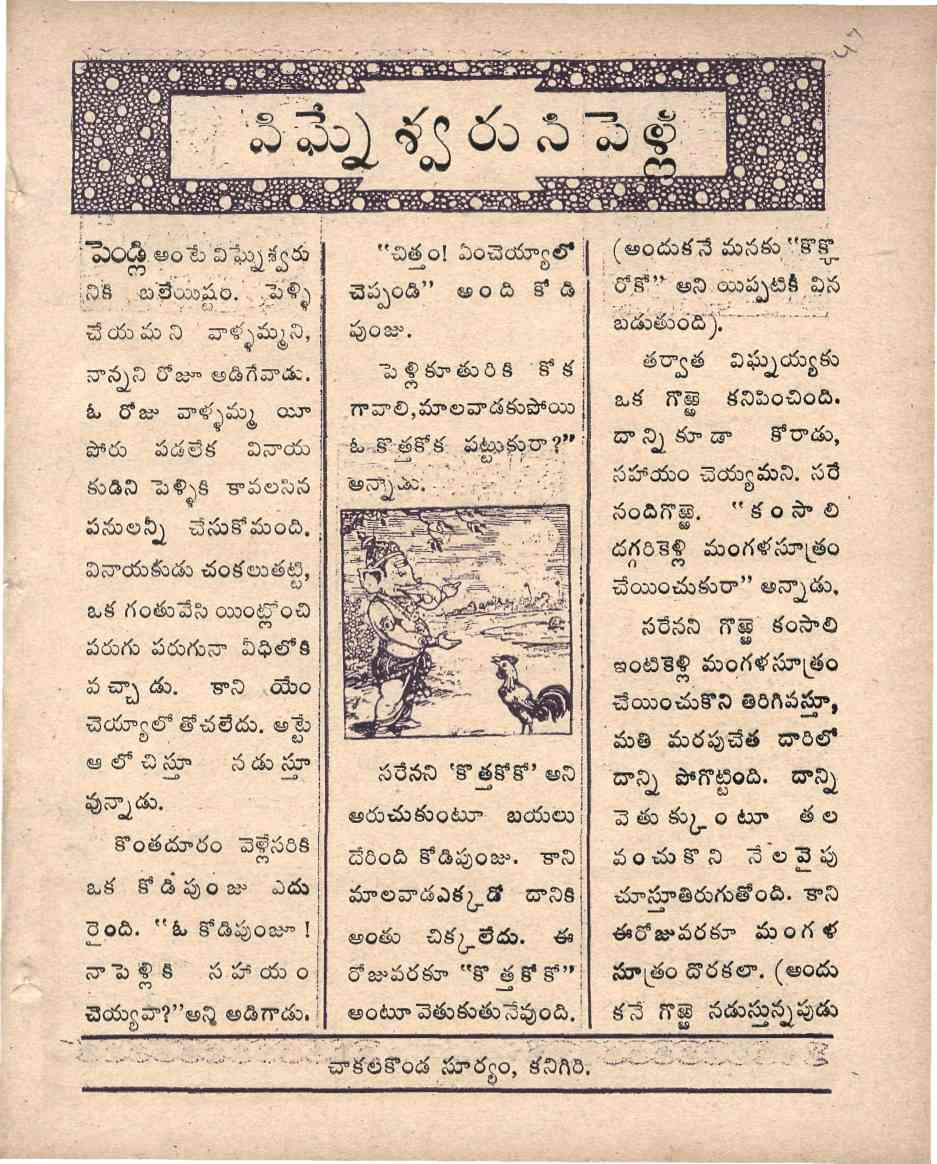 విఘ్నేశ్వరుని పెళ్లి
47
పెండ్లి అంటే విఘ్నేశ్వరు
నికి బలేయిష్టం. పెళ్ళి
చేయమని వాళ్ళమ్మని,
నాన్నని రోజూ అడిగేవాడు.
ఓ రోజు వాళ్ళమ్మ యీ
పోరు పడలేక వినాయ
కుడిని పెళ్ళికి కావలసిన
పనులన్నీ చేసుకోమంది.
వినాయకుడు చంకలుతట్టి,
ఒక గంతువేసి యింట్లోంచి
పరుగు పరుగునా వీధిలోకి
వచ్చాడు. కాని యేం
చెయ్యాలో తోచలేదు. అట్టే
ఆలోచిస్తూ నడుస్తూ
వున్నాడు.
కొంతదూరం వెళ్లేసరికి
ఒక కోడిపుంజు ఎదు
రైంది. “ఓ కోడిపుంజూ!
నాపెళ్లికి సహాయం
చెయ్యవా?” అన్ని అడిగాడు.
“చిత్తం! ఏంచెయ్యాలో
చెప్పండి” అంది కోడి
పుంజు.
పెళ్లికూతురికి కోక
గావాలి, మాలవాడకుపోయి
ఓ కొత్తకోక పట్టుకురా?”
అన్నాడు.
సరేనని ‘కొత్తకోకో’ అని
అరుచుకుంటూ బయలు
దేరింది కోడిపుంజు. కాని
మాలవాడఎక్కడో దానికి
అంతు చిక్కలేదు. ఈ
రోజువరకూ “కొత్తకోకో”
అంటూ వెతుకుతునేవుంది.
(అందుకనే మనకు “కొక్కొ
రోకో” అని యిప్పటికీ విన
బడుతుంది).
తర్వాత విఘ్నయ్యకు
ఒక గొఱ్ఱె కనిపించింది.
దాన్ని కూడా కోరాడు,
సహాయం చెయ్యమని. సరే
నందిగొఱ్ఱె. “కంసాలి
దగ్గరికెళ్లి మంగళసూత్రం
చేయించుకురా” అన్నాడు.
సరేనని గొఱ్ఱె కంసాలి
ఇంటికెళ్లి మంగళసూత్రం
చేయించుకొని తిరిగివస్తూ,
మతి మరపుచేత దారిలో
దాన్ని పోగొట్టింది. దాన్ని
వెతుక్కుంటూ తల
వంచుకొని నేలవైపు
చూస్తూతిరుగుతోంది. కాని
ఈరోజువరకూ మంగళ
సూత్రం దొరకలా. (అందు
కనే గొఱ్ఱె నడుస్తున్నపుడు
చాకలకొండ సూర్యం, కనిగిరి.